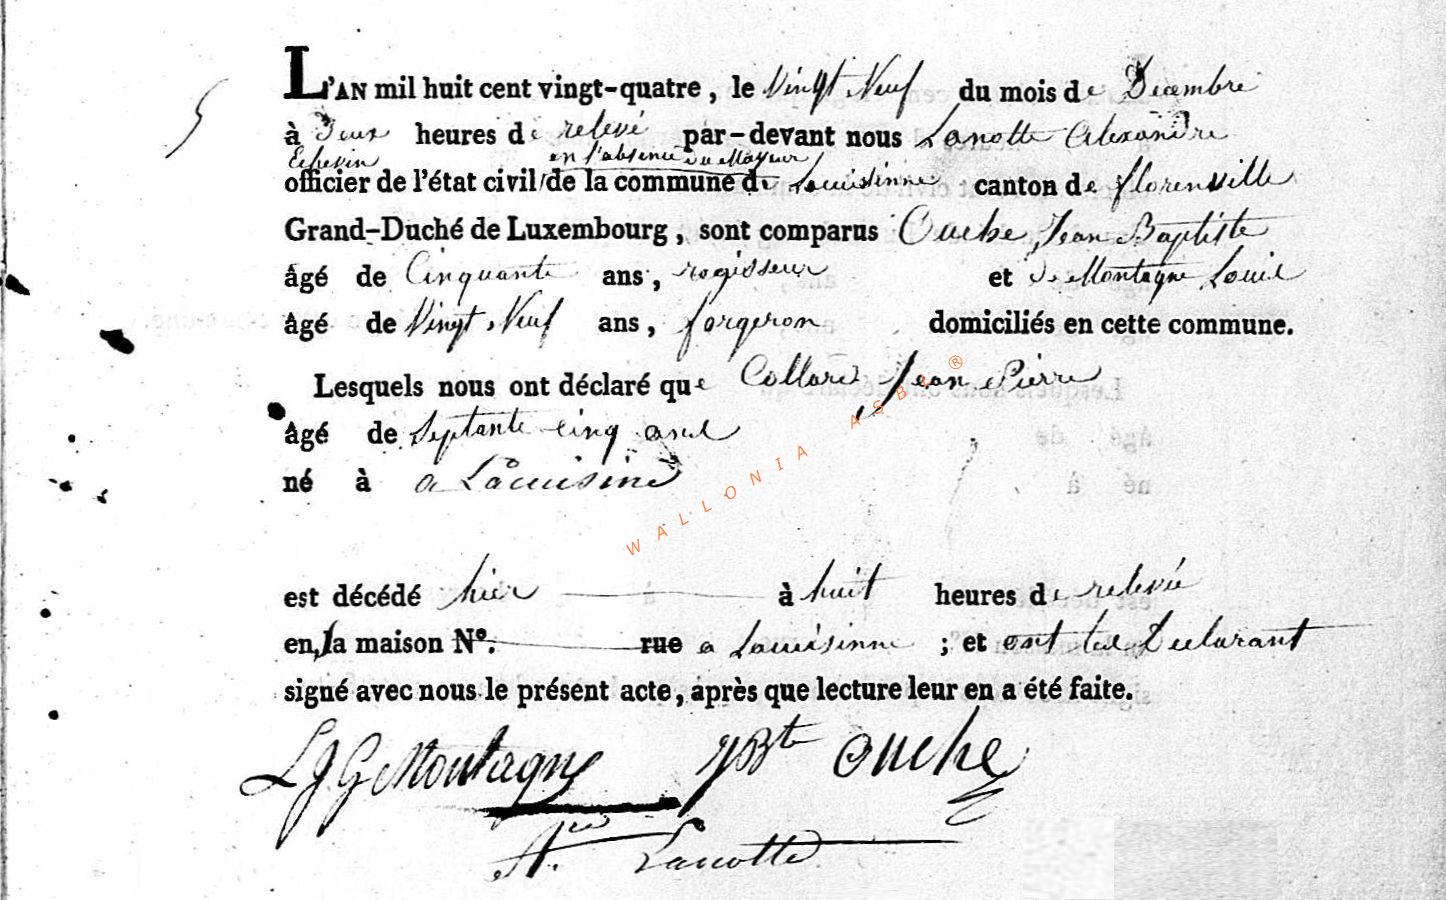 L'AN mil huit cent vingt-quatre, le Vingt Neuf du mois de Decembre
à Deux heures de relevé par-devant nous Lanotte Alexandre
Echevin en l'absence du Mayeur
officier de l'état civil de la commune de Lacuisinne canton de florenville
Grand-Duché de Luxembourg, sont comparus Ouche Jean Baptiste
âgé de Cinquante ans, regisseur et de Montagne Louis
âgé de Vingt Neuf ans, forgeron domiciliés en cette commune.
Lesquels nous ont déclaré que Collard Jean Pierre
âgé de Septante cinq ans
né à a Lacuisine
est décédé hier à huit heures de relevée
en la maison Nº. rue a Lacuisinne ; et ont les Declarant
signé avec nous le présent acte, après que lecture leur en a été faite.
LJG Montagne JBte Ouche
Lanotte
WALLONIA ASBL ®